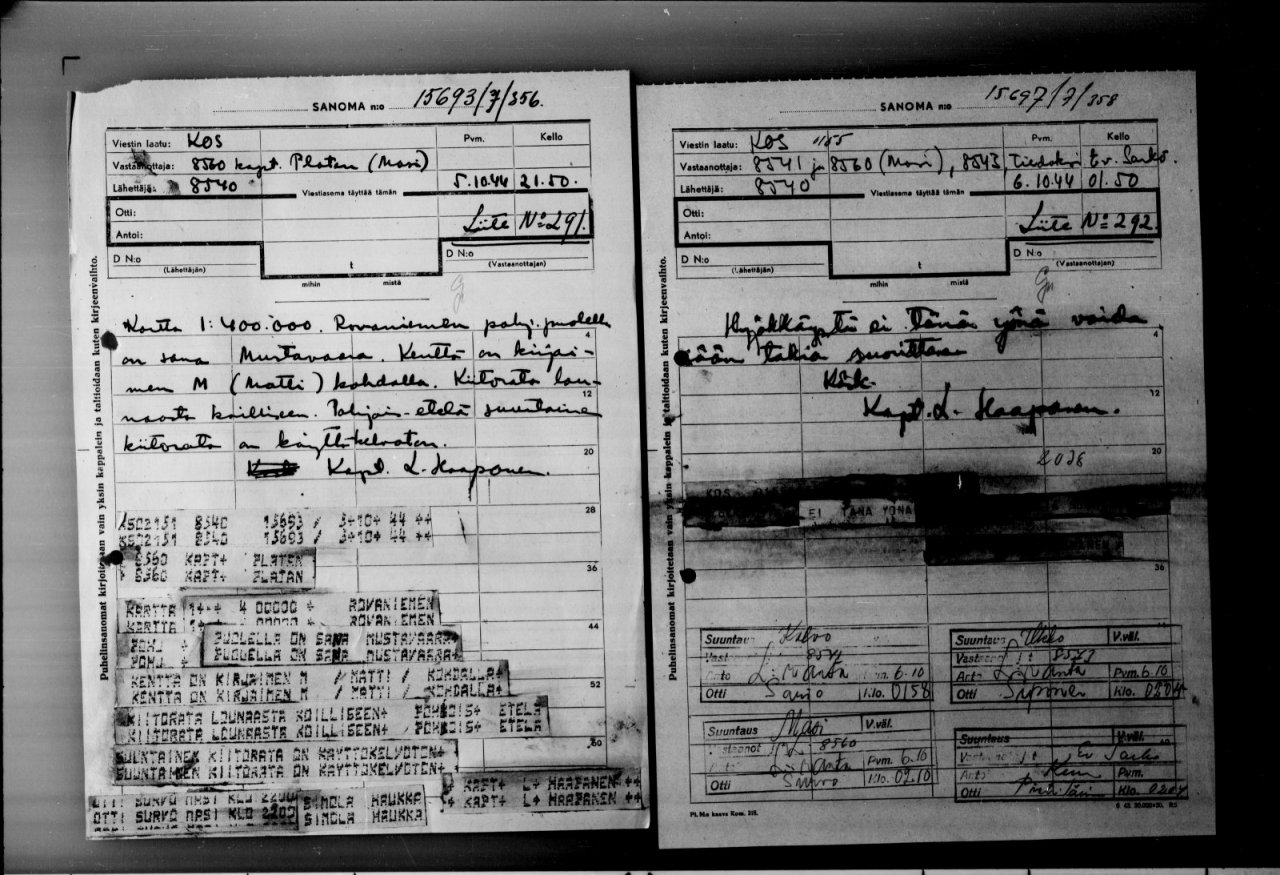 SANOMA n:o 15693/7/356.
Viestin laatu: KOS
Pvm. Kello
Vastaanottaja: 8560 kapt. Platan (Masi)
Lähettäjä: 8540
5.10.44 21.50.
Viestiasema täyttää tämän
Otti:
Antoi:
Liite No 291.
D N:o
(Lähettäjän)
t
D N:o
(Vastaanottajan)
mihin mistä
Puhelinsanomat kirjoitetaan vain yksin kappalein ja taltioidaan kuten kirjeenvaihto.
Kartta 1:400.000. Rovaniemen pohj. puolella
on sana Mustavaara. Kenttä on kirjai-
men M (Matti) kohdalla. Kiitorata lou-
naasta koilliseen. Pohjois-etelä suuntainen
kiitorata on käyttökelvoton.
Kapt. L. Haaponen.
4
12
20
28
36
44
52
60
8540 15693 / 3+10+ 44 ++
8540 15693 / 3+10+ 44 ++
8560 KAPT+ PLATEN
8560 KAPT+ PLATAN
KARTTA 1+++ 4 00000 + ROVANIEMEN
KARTTA ROVANIEMEN
POHJ + PUOLELLA ON SANA MUSTAVAARA+
POHJ + PUOLELLA ON SANA MUSTAVAARA+
KENTTA ON KIRJAIMEN M / MATTI / KOHDALLA+
KENTTA ON KIRJAIMEN M / MATTI / KOHDALLA+
KIITORATA LOUNAASTA KOILLISEEN+ POHJOIS+ ETELA
KIITORATA LOUNAASTA KOILLISEEN+ POHJOIS+ ETELA
SUUNTAINEN KIITORATA ON KAYTTOKELVOTON+
SUUNTAINEN KIITORATA ON KAYTTOKELVOTON+
+ KAPT+ L+ HAAPANEN ++
+ KAPT+ L+ HAAPANEN ++
OTTI SURVO MASI KLO 2205 SIMOLA HAUKKA
OTTI SURVO MASI KLO 2205 SIMOLA HAUKKA
SANOMA n:o 15697/7/358
Viestin laatu: KOS 0155
Pvm. Kello
Vastaanottaja: 8541 ja 8560 (Masi), 8543, Tiedoksi Ev. Sarko.
Lähettäjä: 8540
6.10.44 01.50
Viestiasema täyttää tämän
Otti:
Antoi:
Liite No 292.
D N:o
(Lähettäjän)
t
D N:o
(Vastaanottajan)
mihin mistä
Puhelinsanomat kirjoitetaan vain yksin kappalein ja taltioidaan kuten kirjeenvaihto.
Hyökkäystä ei tänä yönä voida
sään takia suorittaa
Käsk.
Kapt. L. Haaponen.
2028
4
12
20
28
36
KOS
EI TANA YONA
Suuntaus Kalvo
8541
6.10
Otti Sarjo Klo. 0158
Suuntaus Ukko V.väl.
8543
Pvm. 6.10
Otti Klo. 0204
Suuntaus Masi V.väl.
8560
Pvm. 6.10
Otti Survo Klo. 02.10
Suuntaus V.väl.
Ev Sarko
Pvm.
Otti Klo. 0207
Pl. Ma kaava Kom. 215.